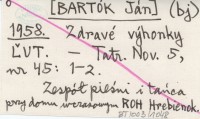 [BARTÓK Ján] (bj)
1958. Zdravé výhonky
ĽUT. — Tatr. Nov. 5,
nr 45: 1-2.
Zespół pieśni i tańca
przy domu wczasowym ROH Hrebienok.